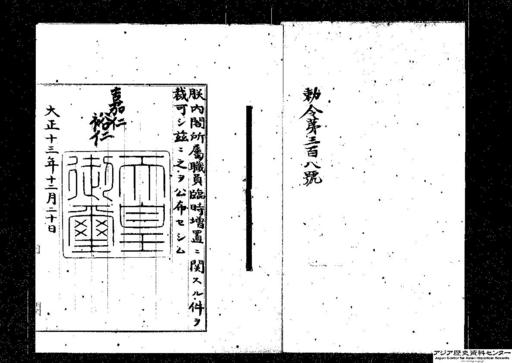 勅令第三百八號
朕內閣所屬職員臨時增置ニ關スル件ヲ
裁可シ茲ニ之ヲ公布セシム
嘉仁
裕仁
天皇
御璽
大正十三年十二月二十日
アジア歴史資料センター
Japan Center for Asian Historical Records